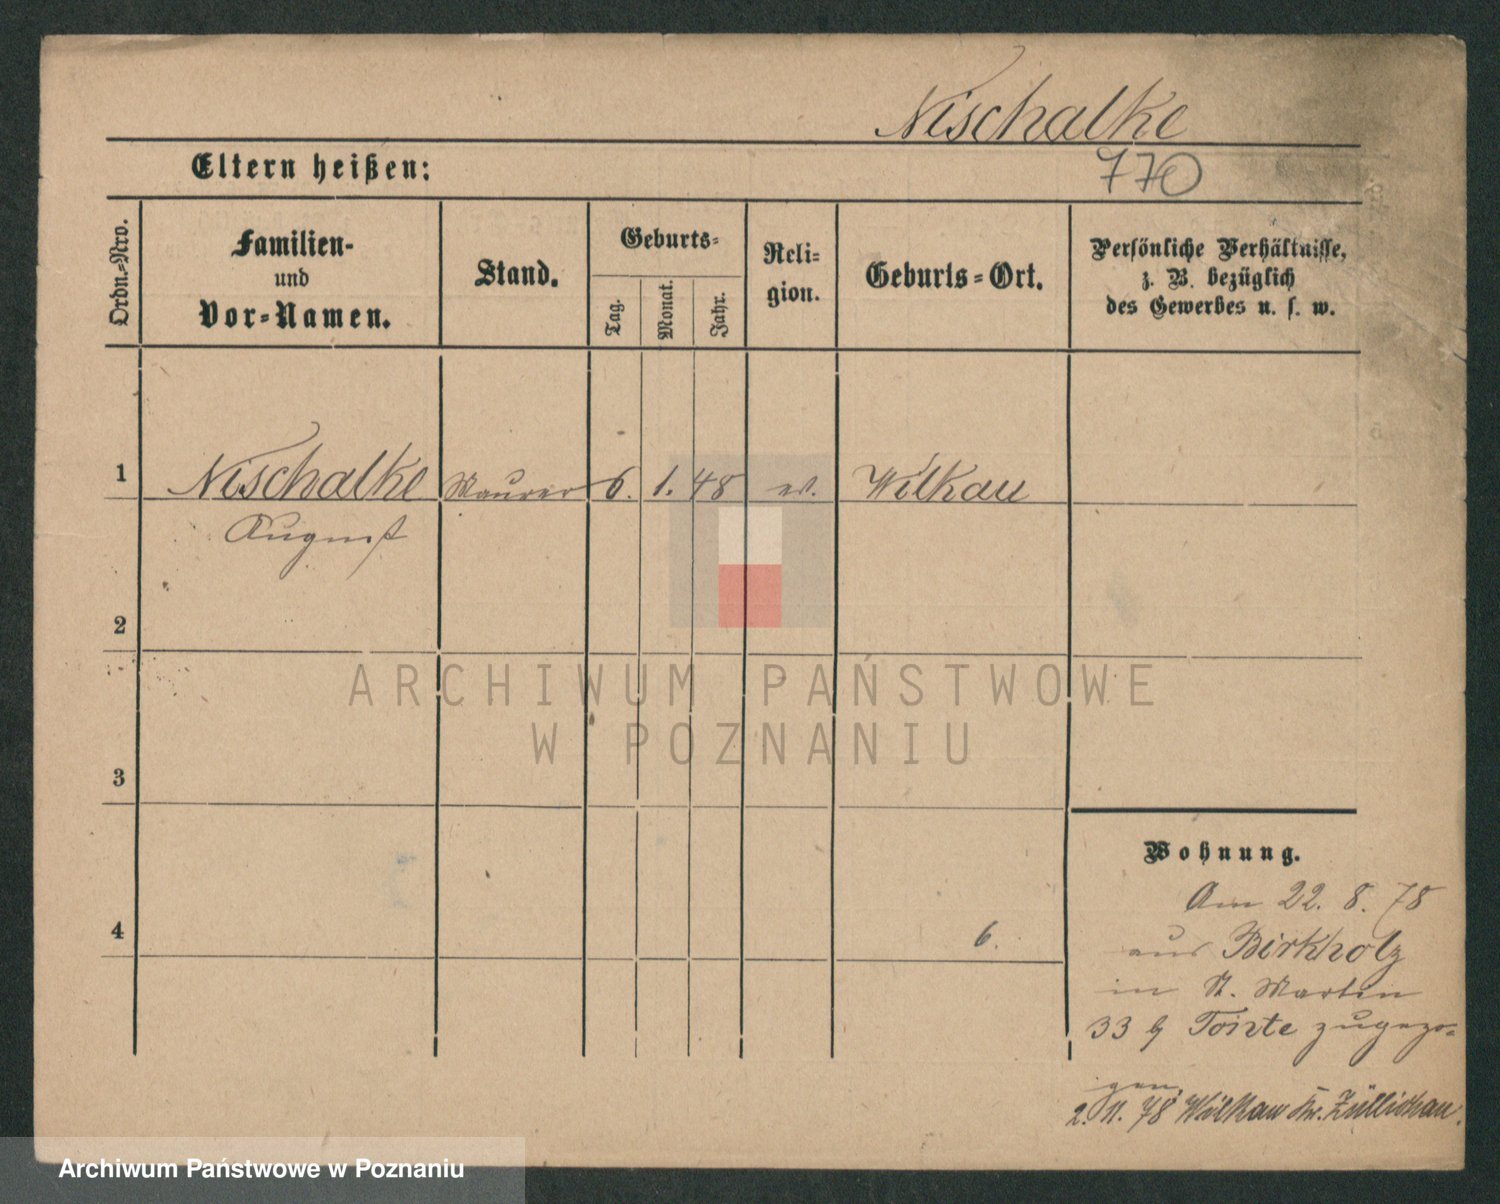 Nischalke
Eltern heißen:
770
Ordn.-Nro.
Familien-
und
Vor-Namen.
Stand.
Geburts-
Tag.
Monat.
Jahr.
Reli-
gion.
Geburts-Ort.
Persönliche Verhältnisse,
z. B. bezüglich
des Gewerbes u. s. w.
1
Nischalke Maurer 6. 1. 48 ev. Wilkau
August
2
ARCHIWUM PAŃSTWOWE
W POZNANIU
3
Wohnung.
Am 22. 8. 78
4
6.
aus Birkholz
in St. Martin
33 b zugezo-
gen.
2. 11. 78 Wilkau Kr. Züllichau.
Archiwum Państwowe w Poznaniu